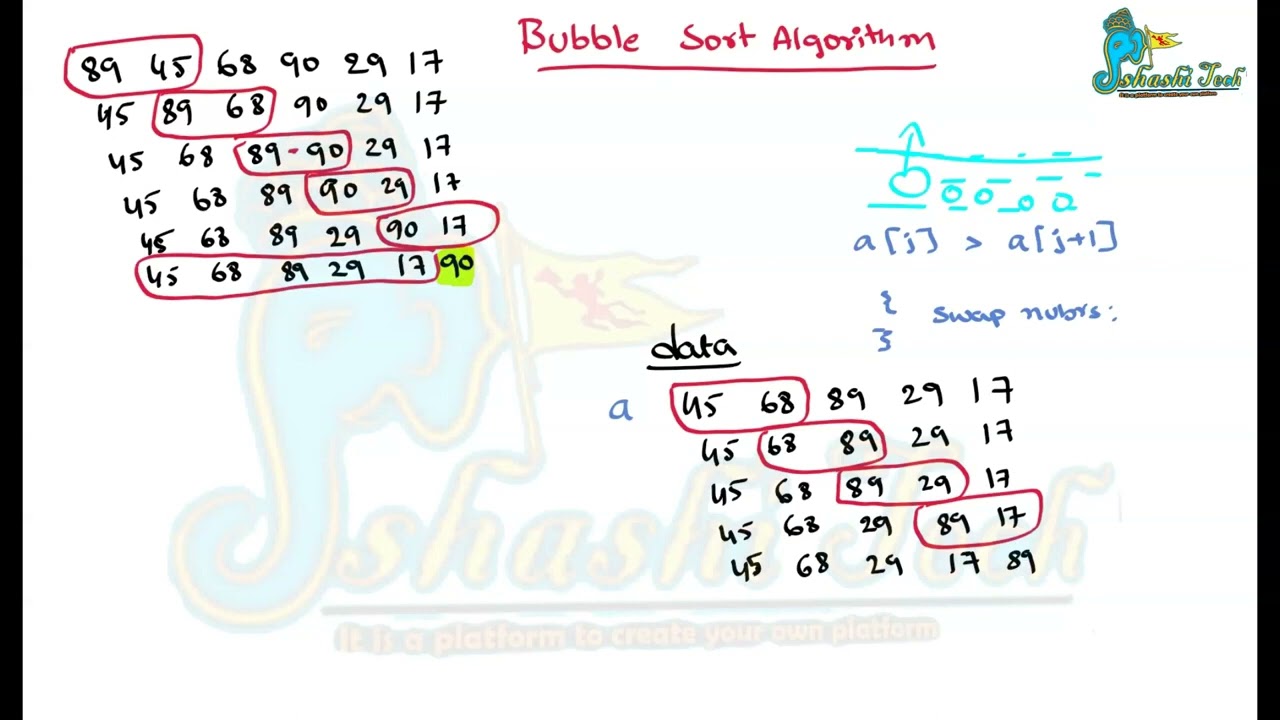 Bubble Sort Algorithm
89 45 68 90 29 17
45 89 68 90 29 17
45 68 89 - 90 29 17
45 68 89 90 29 17
45 68 89 29 90 17
45 68 89 29 17 90
Ishashi Tech
It is a platform to create your own platform
a[j] > a[j+1]
{ swap nubrs;
}
data
a 45 68 89 29 17
45 68 89 29 17
45 68 89 29 17
45 68 29 89 17
45 68 29 17 89
Ishashi Tech
It is a platform to create your own platform